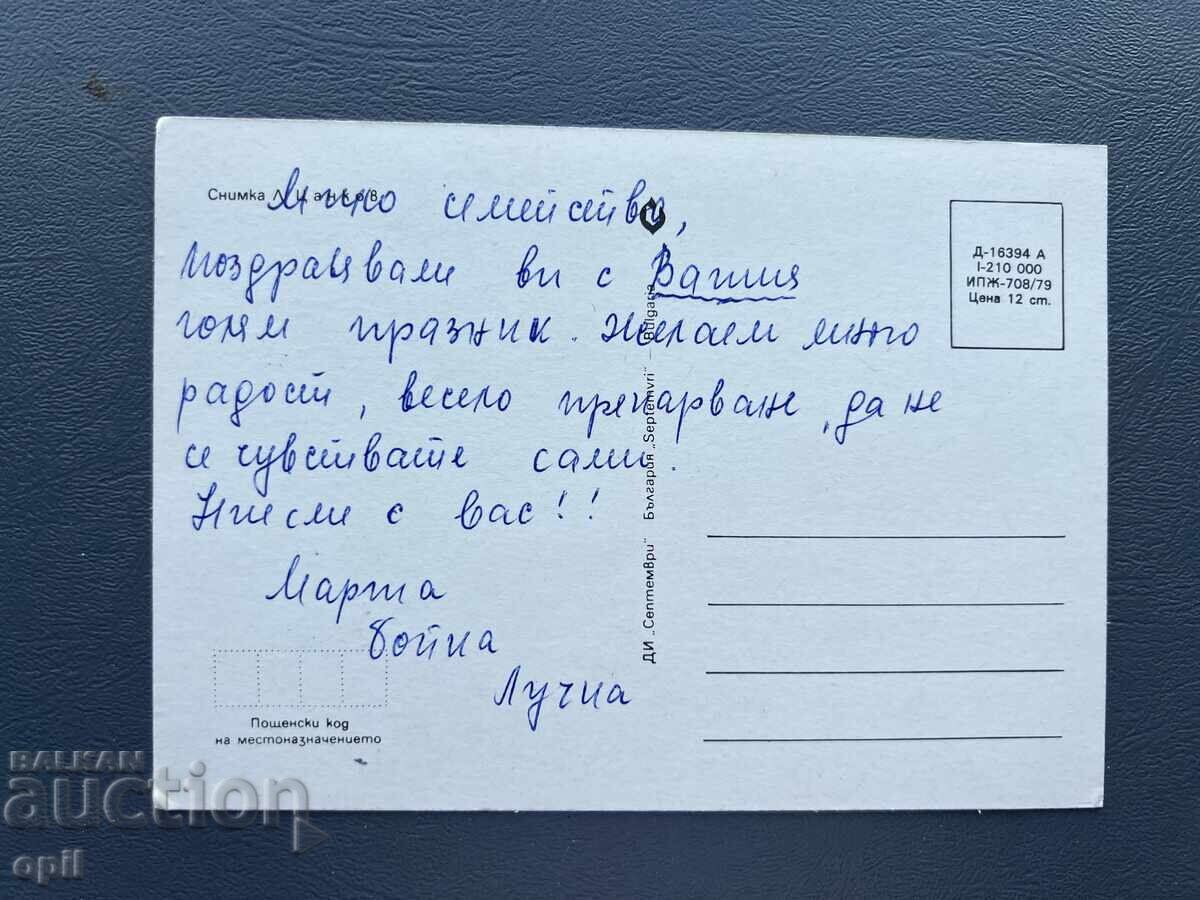 Снимка Л. Цанков
семейство,
поздравявам ви с Вашия
голям празник. Желаем много
радост, весело прекарване, да не
се чувствате сами.
Ние сме с вас!!
Марта
Бойка
Лучка
Пощенски код
на местоназначението
ДИ „Септември" България „Septemvri" - Bulgaria
Д-16394 А
I-210 000
ИПЖ-708/79
Цена 12 ст.
BALKAN
auction
opil